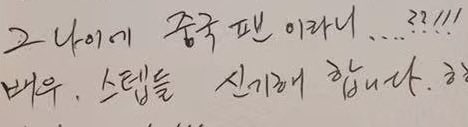 그 나이에 중국 팬 이라니....??!!!
배우. 스텝들 신기해 합니다. ㅎ